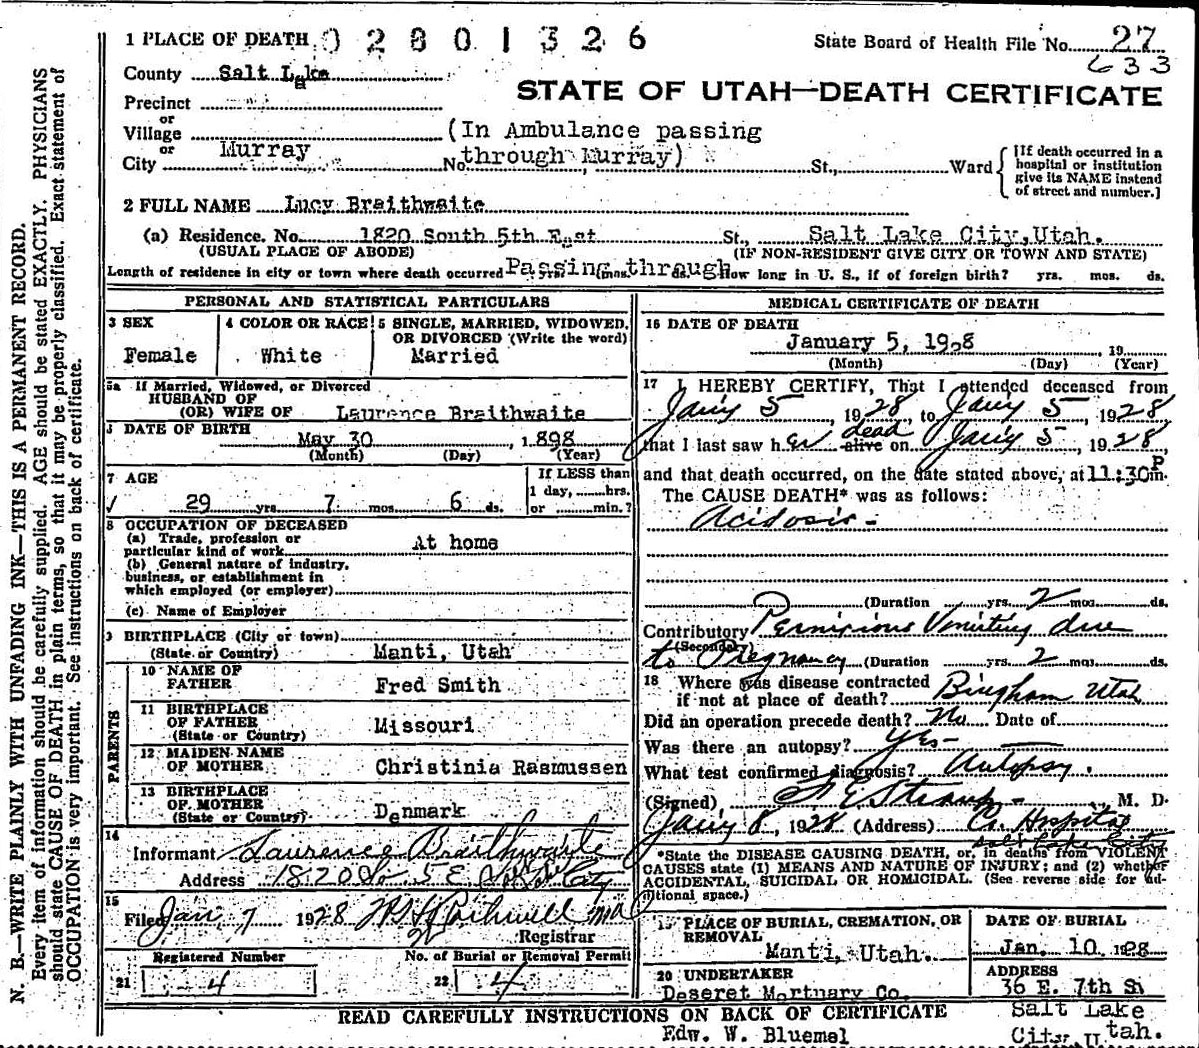 1 PLACE OF DEATH 02801326
State Board of Health File No. 27
633
County Salt Lake
STATE OF UTAH—DEATH CERTIFICATE
Precinct
or
Village
(In Ambulance passing
or
City Murray No. through Murray) St., Ward
[If death occurred in a
hospital or institution
give its NAME instead
of street and number.]
2 FULL NAME Lucy Braithwaite
(a) Residence. No. 1820 South 5th East St., Salt Lake City, Utah.
(USUAL PLACE OF ABODE) (IF NON-RESIDENT GIVE CITY OR TOWN AND STATE)
Length of residence in city or town where death occurred Passing through yrs. mos. ds. How long in U. S., if of foreign birth? yrs. mos. ds.
PERSONAL AND STATISTICAL PARTICULARS
3 SEX
Female
4 COLOR OR RACE
White
5 SINGLE, MARRIED, WIDOWED,
OR DIVORCED (Write the word)
Married
5a If Married, Widowed, or Divorced
HUSBAND OF
(OR) WIFE OF Laurence Braithwaite
DATE OF BIRTH
May 30 1898
(Month) (Day) (Year)
7 AGE
29 yrs. 7 mos. 6 ds.
If LESS than
1 day, hrs.
or min.?
8 OCCUPATION OF DECEASED
(a) Trade, profession or
particular kind of work At home
(b) General nature of industry,
business, or establishment in
which employed (or employer)
(c) Name of Employer
9 BIRTHPLACE (City or town)
(State or Country) Manti, Utah
PARENTS
10 NAME OF
FATHER Fred Smith
11 BIRTHPLACE
OF FATHER
(State or Country) Missouri
12 MAIDEN NAME
OF MOTHER Christinia Rasmussen
13 BIRTHPLACE
OF MOTHER
(State or Country) Denmark
14
Informant Laurence Braithwaite
Address 1820 So. 5 E. City
15
Filed Jan 7 1928
Registrar
Registered Number
21 4
No. of Burial or Removal Permit
22 4
MEDICAL CERTIFICATE OF DEATH
16 DATE OF DEATH
January 5, 1928 19
(Month) (Day) (Year)
17 I HEREBY CERTIFY, That I attended deceased from
Jan'y 5 1928, to Jan'y 5, 1928
that I last saw her alive dead on Jan'y 5, 1928
and that death occurred, on the date stated above, at 11:30 P m.
The CAUSE DEATH* was as follows:
Acidosis -
(Duration yrs. 2 mos. ds.
Contributory Pernicious Vomiting due
(Secondary)
to Pregnancy (Duration yrs. 2 mos. ds.
18 Where was disease contracted
if not at place of death? Bingham Utah
Did an operation precede death? No Date of
Was there an autopsy? Yes-
What test confirmed diagnosis? Autopsy.
(Signed) M. D.
Jan'y 8, 1928 (Address) Co. Hospital
Salt Lake City
*State the DISEASE CAUSING DEATH, or, in deaths from VIOLENT
CAUSES state (1) MEANS AND NATURE OF INJURY; and (2) whether
ACCIDENTAL, SUICIDAL OR HOMICIDAL. (See reverse side for ad-
ditional space.)
19 PLACE OF BURIAL, CREMATION, OR
REMOVAL
Manti, Utah.
DATE OF BURIAL
Jan. 10 1928
20 UNDERTAKER
Deseret Mortuary Co.
ADDRESS
36 E. 7th S
READ CAREFULLY INSTRUCTIONS ON BACK OF CERTIFICATE
Salt Lake
Edw. W. Bluemel
City, Utah.
N. B.—WRITE PLAINLY WITH UNFADING INK—THIS IS A PERMANENT RECORD.
Every item of information should be carefully supplied. AGE should be stated EXACTLY. PHYSICIANS
should state CAUSE OF DEATH in plain terms, so that it may be properly classified. Exact statement of
OCCUPATION is very important. See instructions on back of certificate.